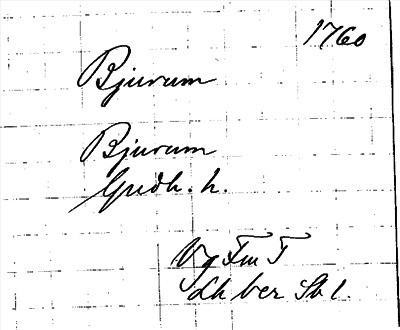 1760
Bjurum
Bjurum
Gudh. h.
Vg Fm T
Lh ber Sk 1.